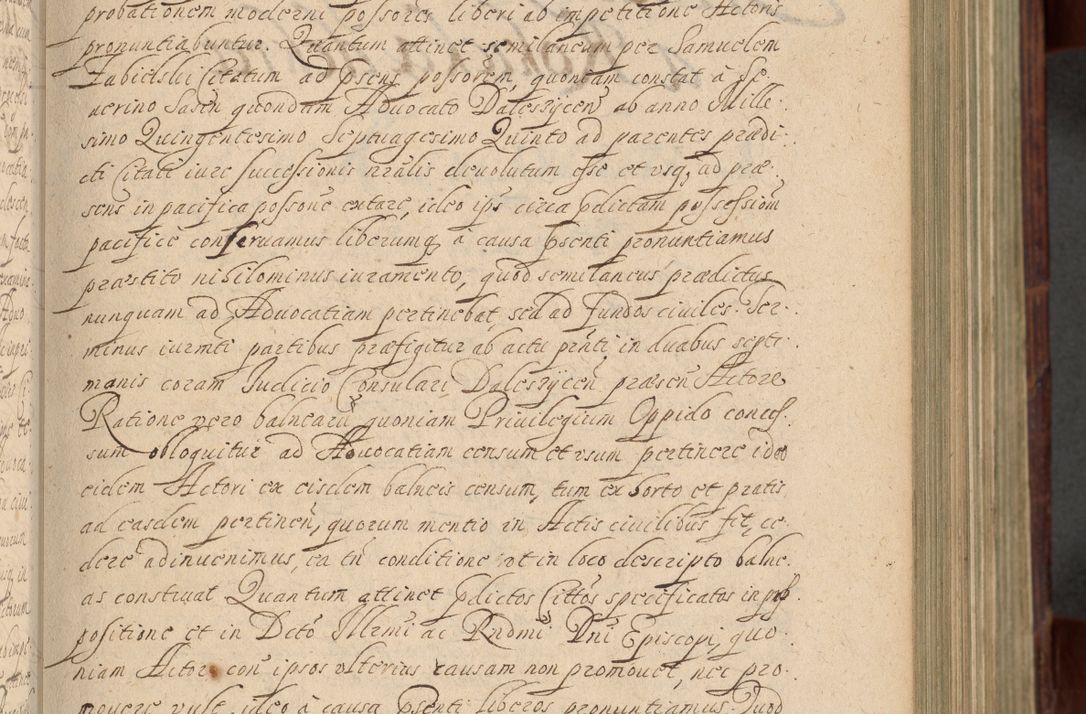 probationem moderni possores liberi ab impetitione Actoris
pronuntiabuntur. Quantum attinet semilaneum per Samuelem
Zabielski Citatum ad psens possorem, quoniam constat à Se
uerino Sasin quondam Aduocato Daleszycen̄ ab anno Mille
simo Quingentesimo Septuagesimo Quinto ad parentes prædi
cti Citati iure successionis nr̄alis deuolutum esse et usq, ad præ
sens in pacifica possone extare, ideo ips circa pdictam possession̄
pacificè conseruamus liberumq à causa psenti pronuntiamus
præstito nihilominus iuramento, quod semilaneus prædictus
nunquam ad Aduocatiam pertinebat, sed ad fundos ciuiles. Ter
minus iurmti partibus præfigitur ab actu prn̄ti in duabus septi
manis coram Judicio Consulari Daleszycen̄ præsen̄ Actore
Ratione vero balnearū quoniam Priuilegium Oppido conces
sum obloquitur ad Aduocatiam censum et usum pertinere ideo
eidem Actori ex eisdem balneis censum, tum ex horto et pratis
ad easdem pertinen̄, quorum mentio in Actis ciuilibus fit, ce
dere adinuenimus, ea tn̄ conditione vt in loco descripto balne
as construat Quantum attinet pdictos Cittos specificatos in pro
positione et in Dctō Illrmi ac Rndmi Dn̄i Episcopi, quo
niam Actor con̄ ipsos vlterius causam non promouet, nec pro
mouere vult, ideo à causa psenti liberos pronuntiamus. Quod